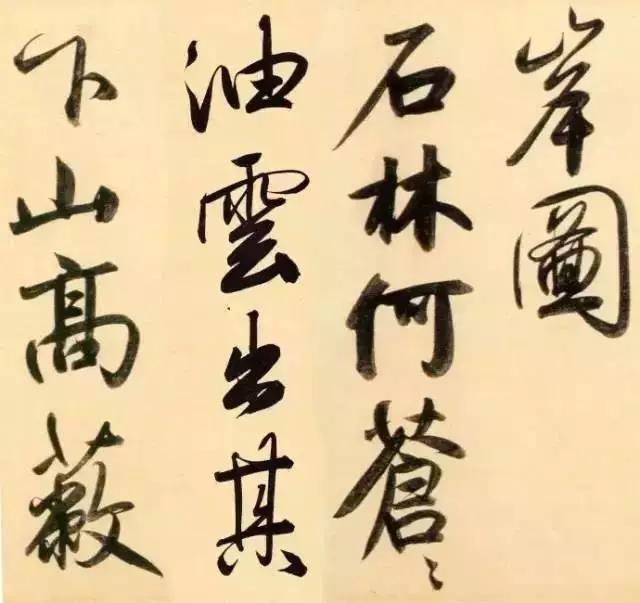 岸圖
石林何蒼〻
油雲出其
下山高蔽